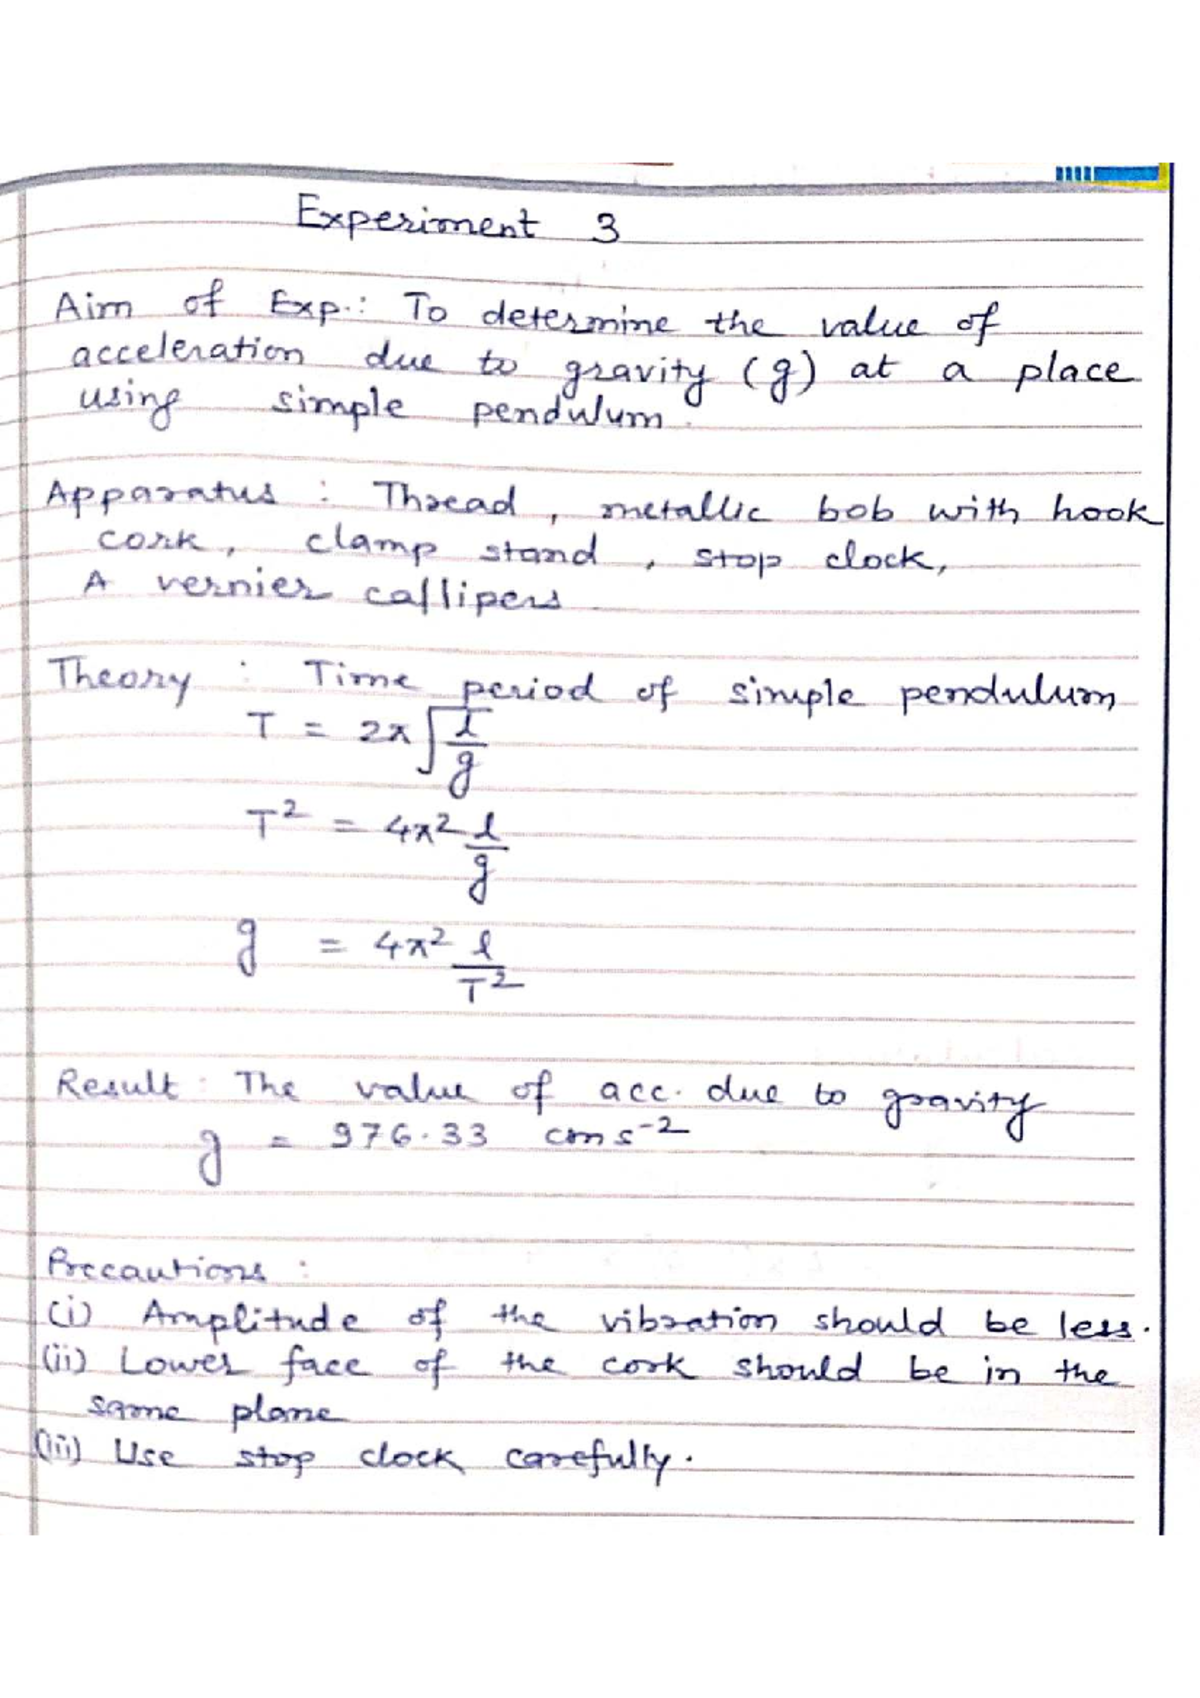 Experiment 3
Aim of Exp.: To determine the value of
acceleration due to gravity (g) at a place
using simple pendulum.
Apparatus : Thread, metallic bob with hook
cork, clamp stand, stop clock,
A vernier callipers
Theory : Time period of simple pendulum
T = 2π√(l/g)
T² = 4π² l/g
g = 4π² l/T²
Result : The value of acc. due to gravity
g = 976.33 cm s⁻²
Precautions :
(i) Amplitude of the vibration should be less.
(ii) Lower face of the cork should be in the
same plane
(iii) Use stop clock carefully.